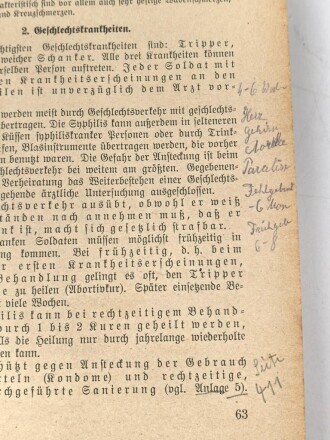 arakteristisch sind vor allem auch sehr heftige
und Kreuzschmerzen.
2. Geschlechtskrankheiten.
chtigsten Geschlechtskrankheiten sind: Tripper,
weicher Schanker. Alle drei Krankheiten können
erselben Person auftreten. Jeder Soldat mit
en Krankheitserscheinungen an den
eilen ist unverzüglich dem Arzt vor-
4-6 Woch
werden meist durch Geschlechtsverkehr mit geschlechts-
übertragen. Die Syphilis kann außerdem in selteneren
Küssen syphiliskranker Personen oder durch Trink-
essen, Blasinstrumente übertragen werden, die vorher
en benutzt waren. Die Gefahr der Ansteckung ist beim
verkehr bei weitem am größten. Gegebenen-
Verheiratung das Weiterbestehen einer Geschlechts-
gehende ärztliche Untersuchung ausgeschlossen.
Herz
Gehirn
Paralise
tsverkehr ausübt, obwohl er weiß
ständen nach annehmen muß, daß er
krank ist, macht sich gesetzlich strafbar.
anken Soldaten müssen möglichst frühzeitig in
ung kommen. Bei frühzeitig, d. h. beim
r ersten Krankheitserscheinungen,
Behandlung gelingt es oft, den Tripper
e zu heilen (Abortivkur). Später einsetzende Be-
t viele Wochen.
ilis kann bei rechtzeitigem Behand-
durch 1 bis 2 Kuren geheilt werden,
ls die Heilung nur durch jahrelange wiederholte
en kann.
hützt gegen Ansteckung der Gebrauch
itteln (Kondome) und rechtzeitige,
chgeführte Sanierung (vgl. Anlage 5).
-6 Mon
6-8
Seite
411
63